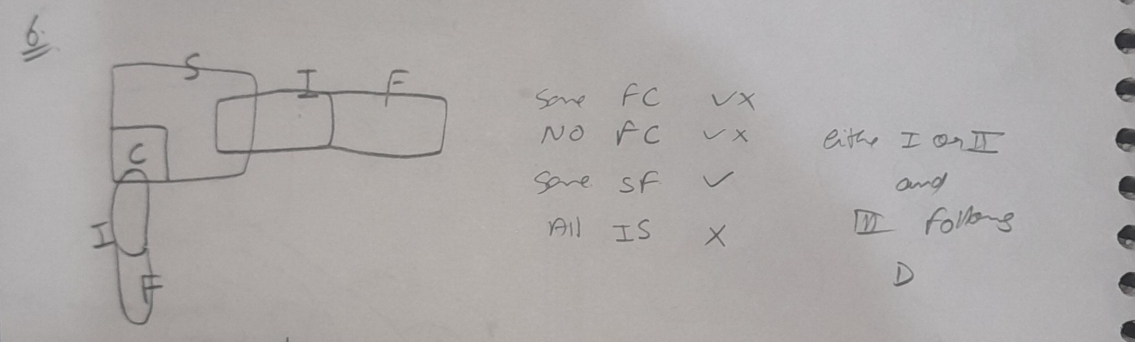 6.
S
I F
C
I
F
Some FC ✓×
NO FC ✓×
Some SF ✓
All IS ×
either I or II
and
III follows
D